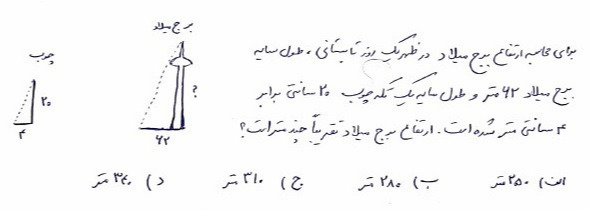 برای محاسبه ارتفاع برج میلاد در ظهر یک روز تابستانی، طول سایه
برج میلاد ۶۲ متر و طول سایه یک تکه چوب ۲۰ سانتی برابر
۴ سانتی متر شده است. ارتفاع برج میلاد تقریباً چند متر است؟
برج میلاد
؟
۶۲
چوب
۲۰
۴
الف) ۲۵۰ متر ب) ۲۸۰ متر ج) ۳۱۰ متر د) ۳۴۰ متر